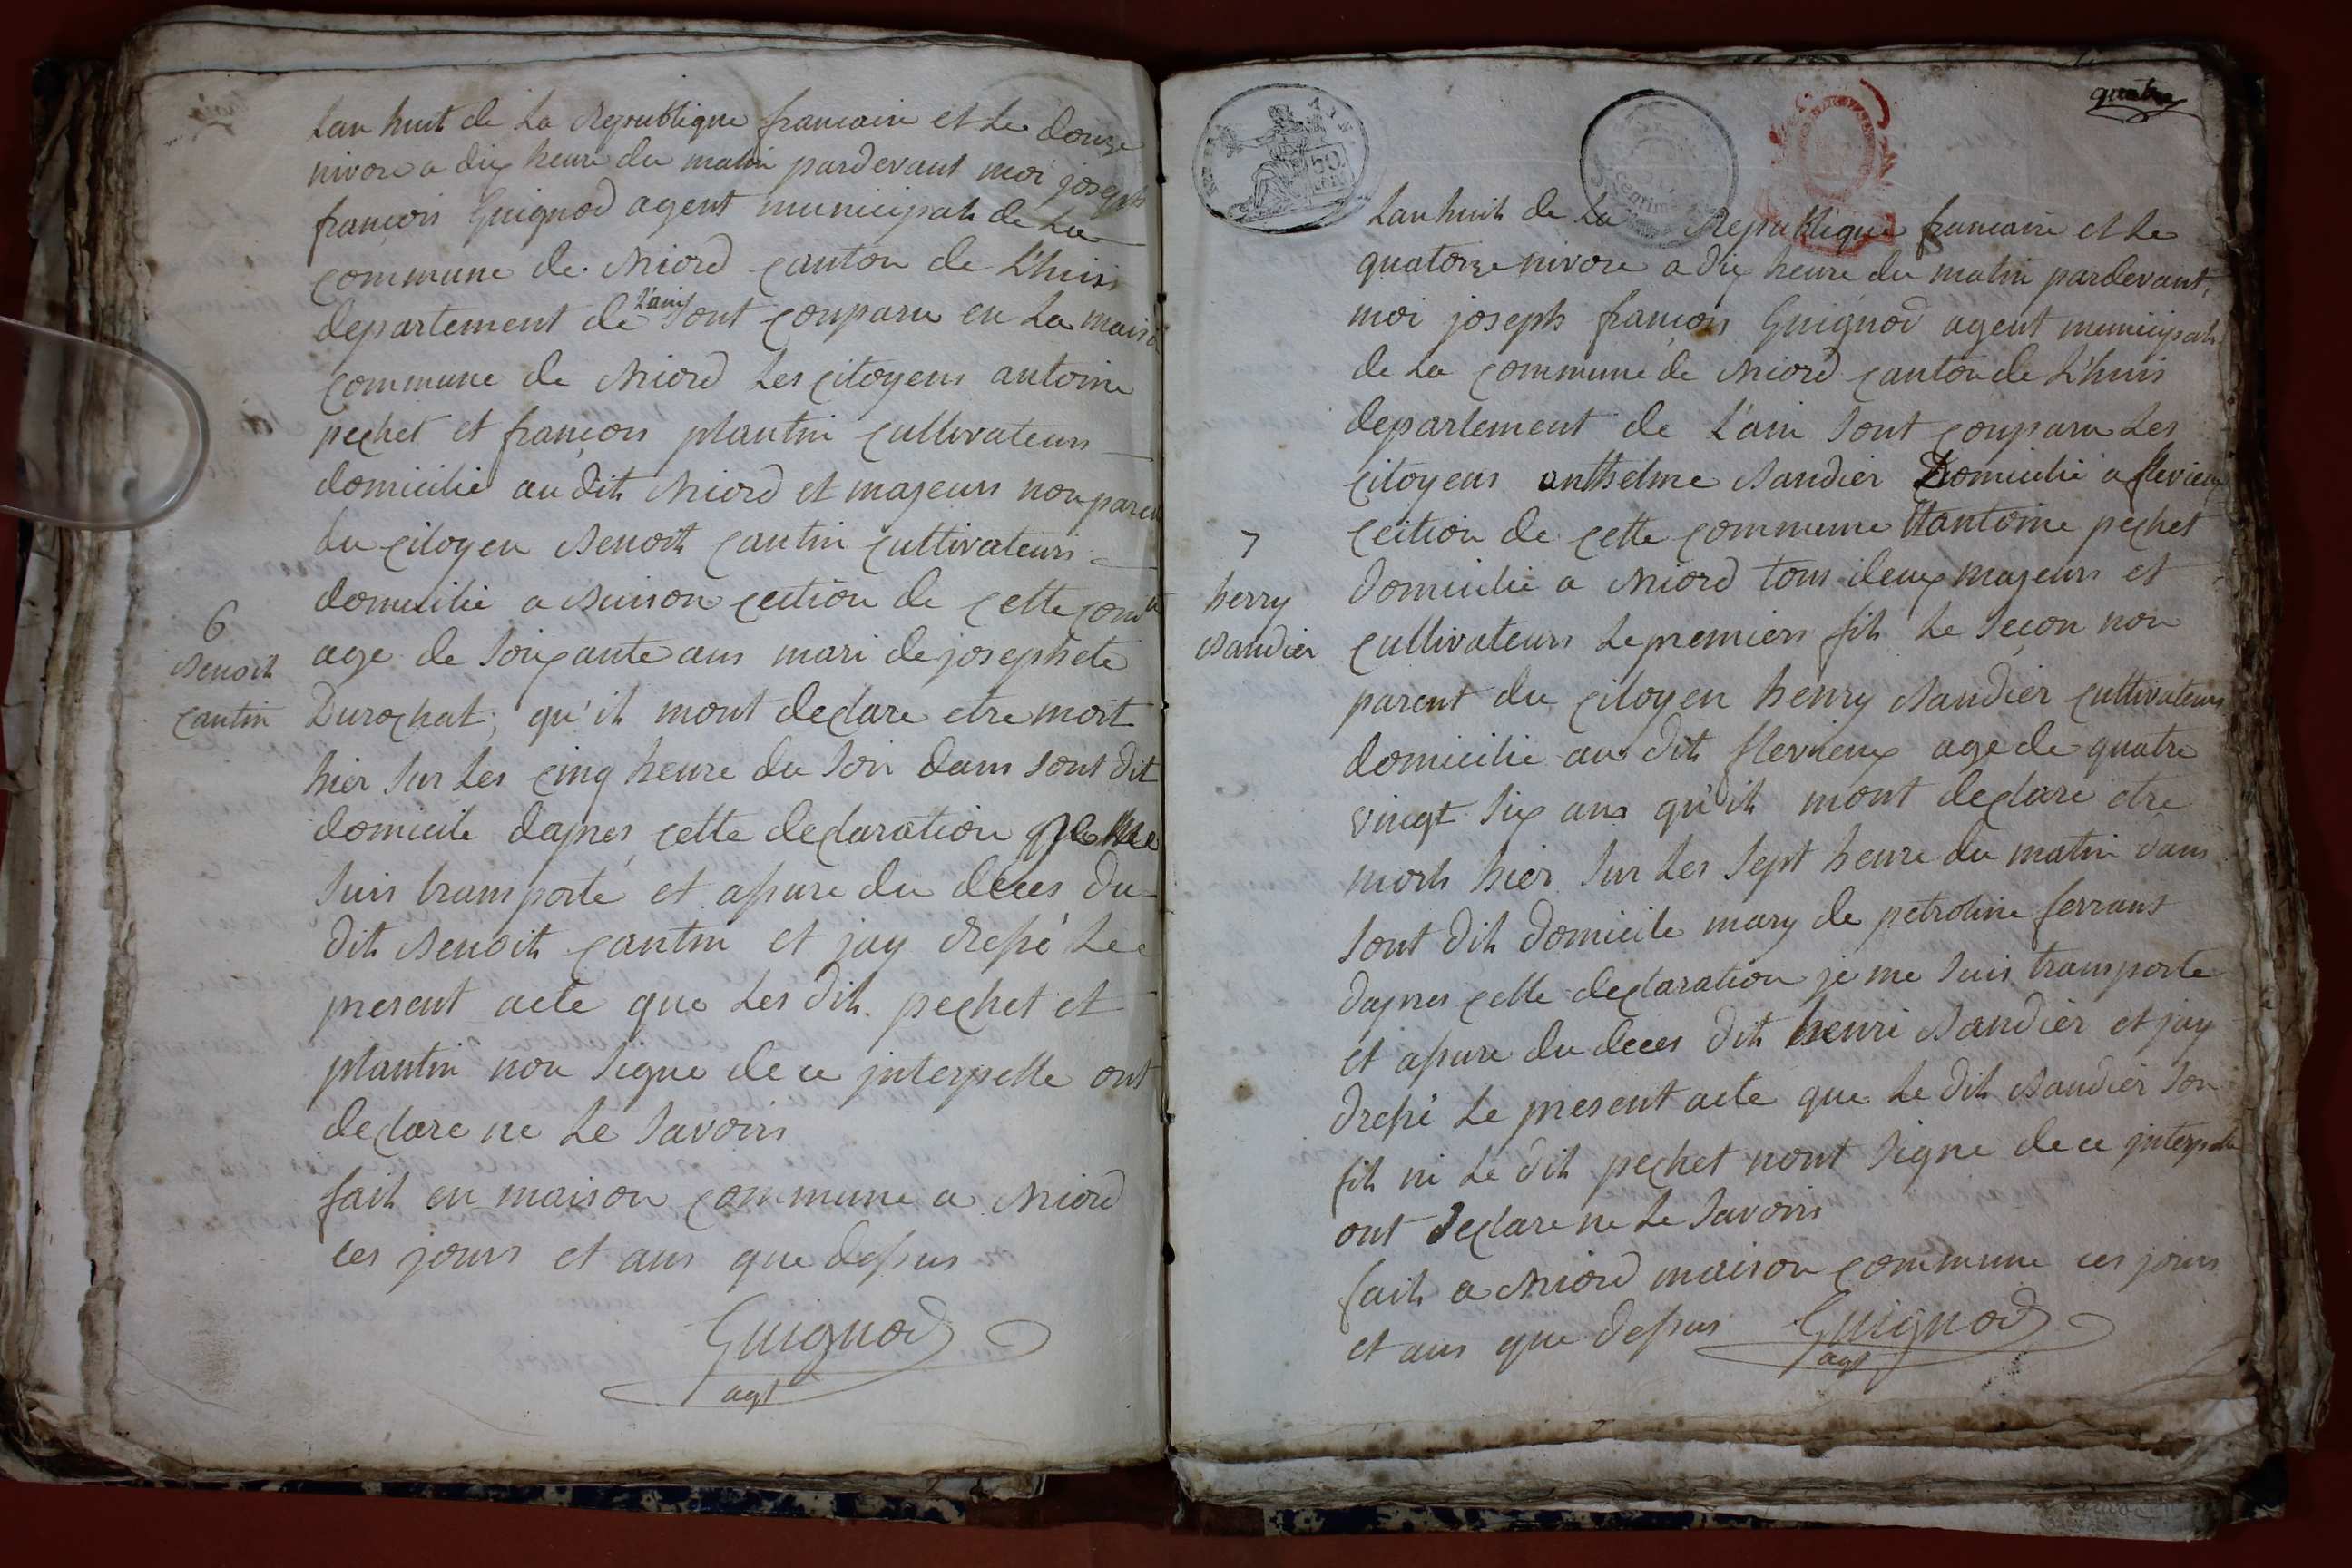 Lan huit de La Republique francaise et Le douze
nivose a dix heure du matin pardevant moi joseph
françois Guignod agent municipals de La
commune de Briord canton de L'huis
departement de L'ain Sont conparu en La maison
commune de Briord Les citoyens antoine
pechet et françois plantin cultivateurs
domicilié au dit Briord et majeurs non parent
du citoyen Benoit cantin cultivateurs
domicilié a Buison cection de cette
age de Soixante ans mari de josephete
Durochat, qu'il mont declare etre mort
hier Sur Les cinq heure du Soir dans Sont dit
domicile dapres cette declaration je me
Suis transporté et assure du deces du
dit Benoit cantin et jay dressé Le
present acte que Les dit pechet et
plantin non Signe de ce jnterpelle ont
declare ne Le Savoirs
fait en maison commune a Briord
ces jours et ans que dessus
Guignod
agt
6
Benoit
Cantin
quatre
50
centimes
Lan huit de La Republique francaise et Le
quatorze nivose a dix heure du matin pardevant
moi joseph françois Guignod agent municipals
de La commune de Briord canton de L'huis
departement de L'ain Sont conparu Les
citoyens anthelme Baudier Domicilié a flevieux
cection de cette commune antoine pechet
domicilié a Briord tous deux majeurs et
cultivateurs Le premiers fils Le Seçon non
parent du citoyen henry Baudier cultivateurs
domicilié au dit flevieux age de quatre
vingt Six ans qu'il mont declaré etre
mort hier Sur Les Sept heure du matin dans
Sont dit domicile mary de petroline ferrant
dapres cette declaration je me Suis transporte
et assure du deces dit henri Baudier et jay
dressé Le present acte que Le dit Baudier Son
fils ni Le dit pechet nont Signe de ce jnterpelle
ont declare ne Le Savoirs
fait a Briord maison commune ces jours
et ans que dessus Guignod
agt
7
henry
Baudier